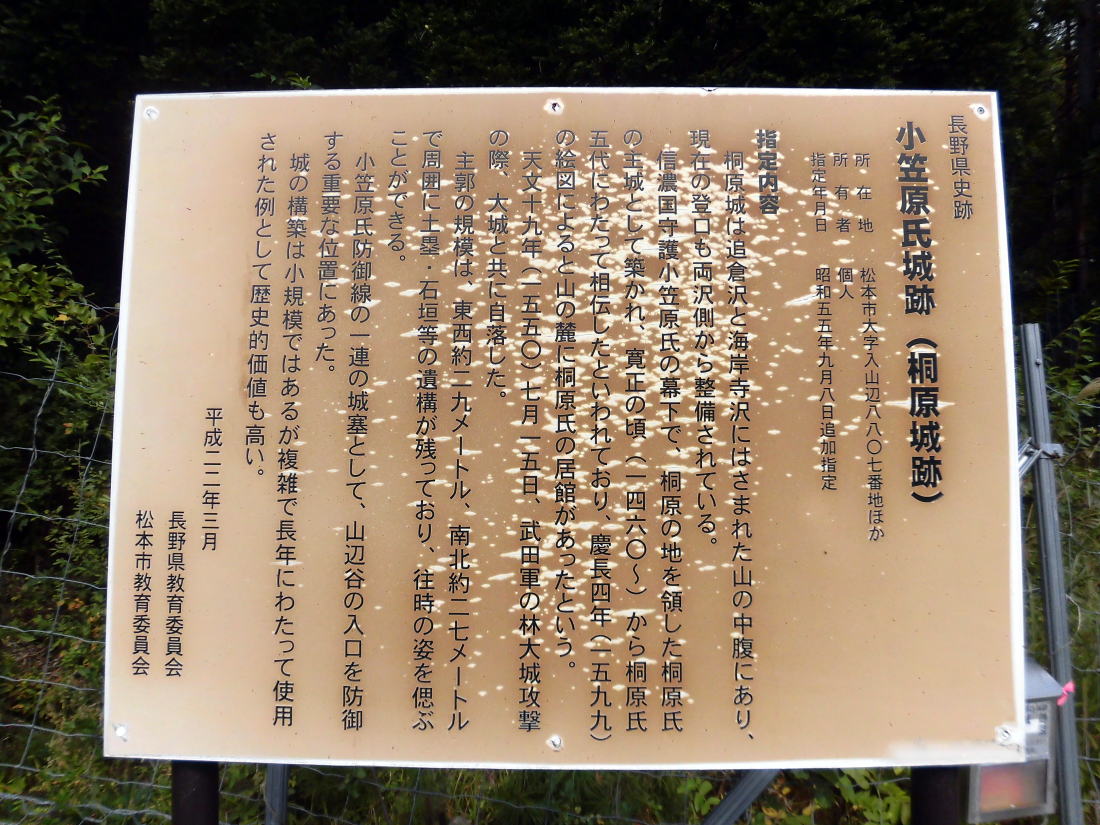 長野県史跡
小笠原氏城跡（桐原城跡）
所在地　松本市大字入山辺八八〇七番地ほか
所有者　個人
指定年月日　昭和五五年九月八日追加指定
指定内容
桐原城は追倉沢と海岸寺沢にはさまれた山の中腹にあり、
現在の登口も両沢側から整備されている。
信濃国守護小笠原氏の幕下で、桐原の地を領した桐原氏
の主城として築かれ、寛正の頃（一四六〇〜）から桐原氏
五代にわたって相伝したといわれており、慶長四年（一五九九）
の絵図によると山の麓に桐原氏の居館があったという。
天文十九年（一五五〇）七月一五日、武田軍の林大城攻撃
の際、大城と共に自落した。
主郭の規模は、東西約二九メートル、南北約二七メートル
で周囲に土塁・石垣等の遺構が残っており、往時の姿を偲ぶ
ことができる。
小笠原氏防御線の一連の城塞として、山辺谷の入口を防御
する重要な位置にあった。
城の構築は小規模ではあるが複雑で長年にわたって使用
された例として歴史的価値も高い。
平成二二年三月
長野県教育委員会
松本市教育委員会